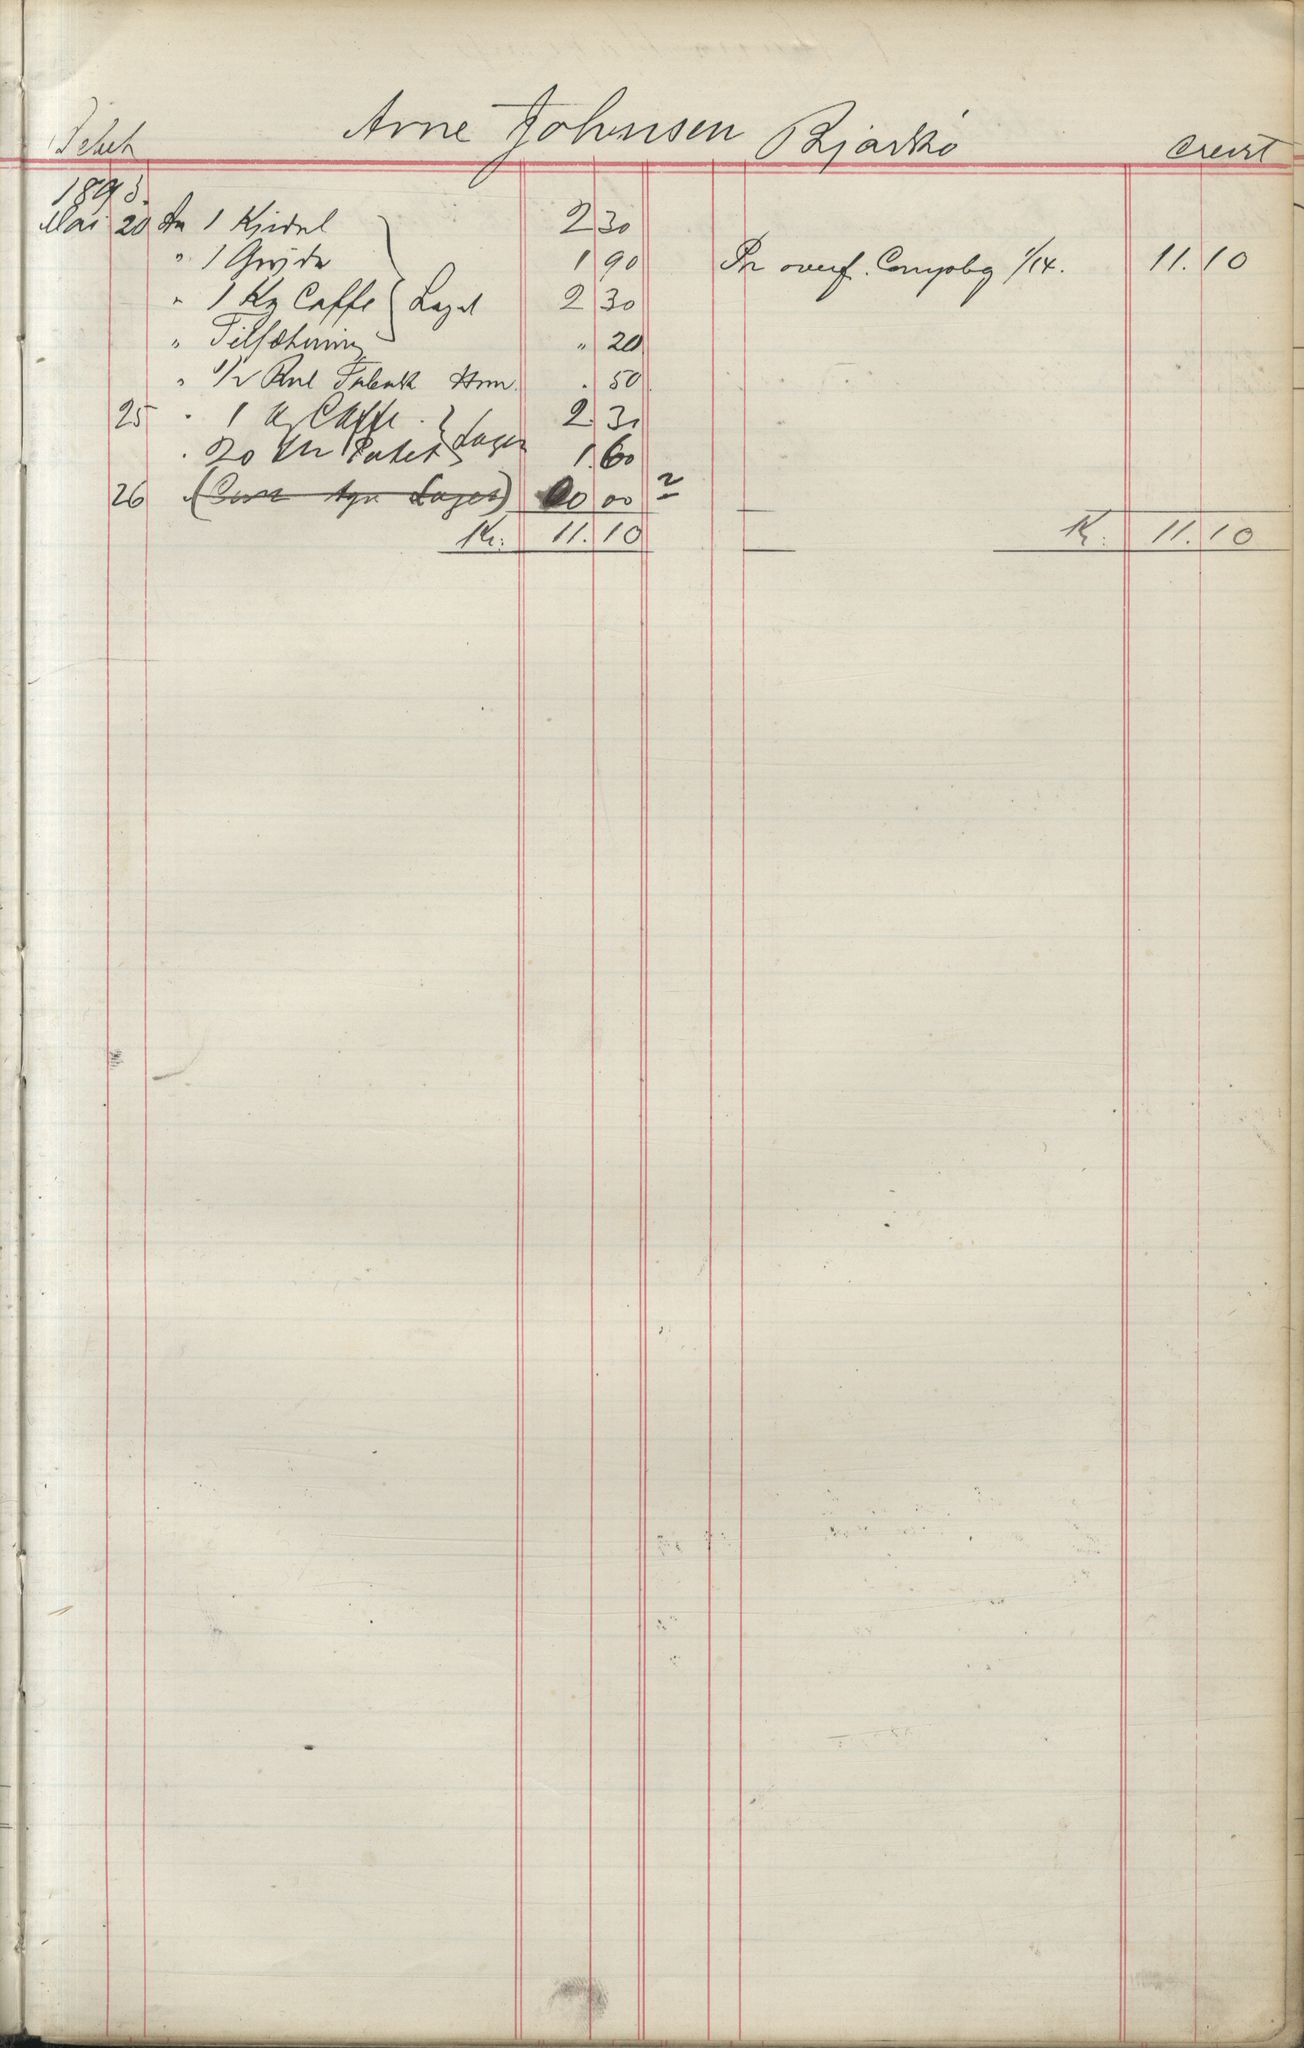 Debet Arne Johnsen Bjarkø Credit
1893.
Mai 20 An 1 Kjedel 2 30
" 1 Gryde 1 90 Pr overf. Compbg 1/14. 11.10
" 1 Kg Caffe Lager 2 30
" Tilsætning " 20
" 1/2 Rul Tabak Hrm. . 50
25 " 1 Kg Caffe. Lager 2.30
. 20 1.60
26 " ( Lager) 00 00
Kr: 11.10 Kr: 11.10